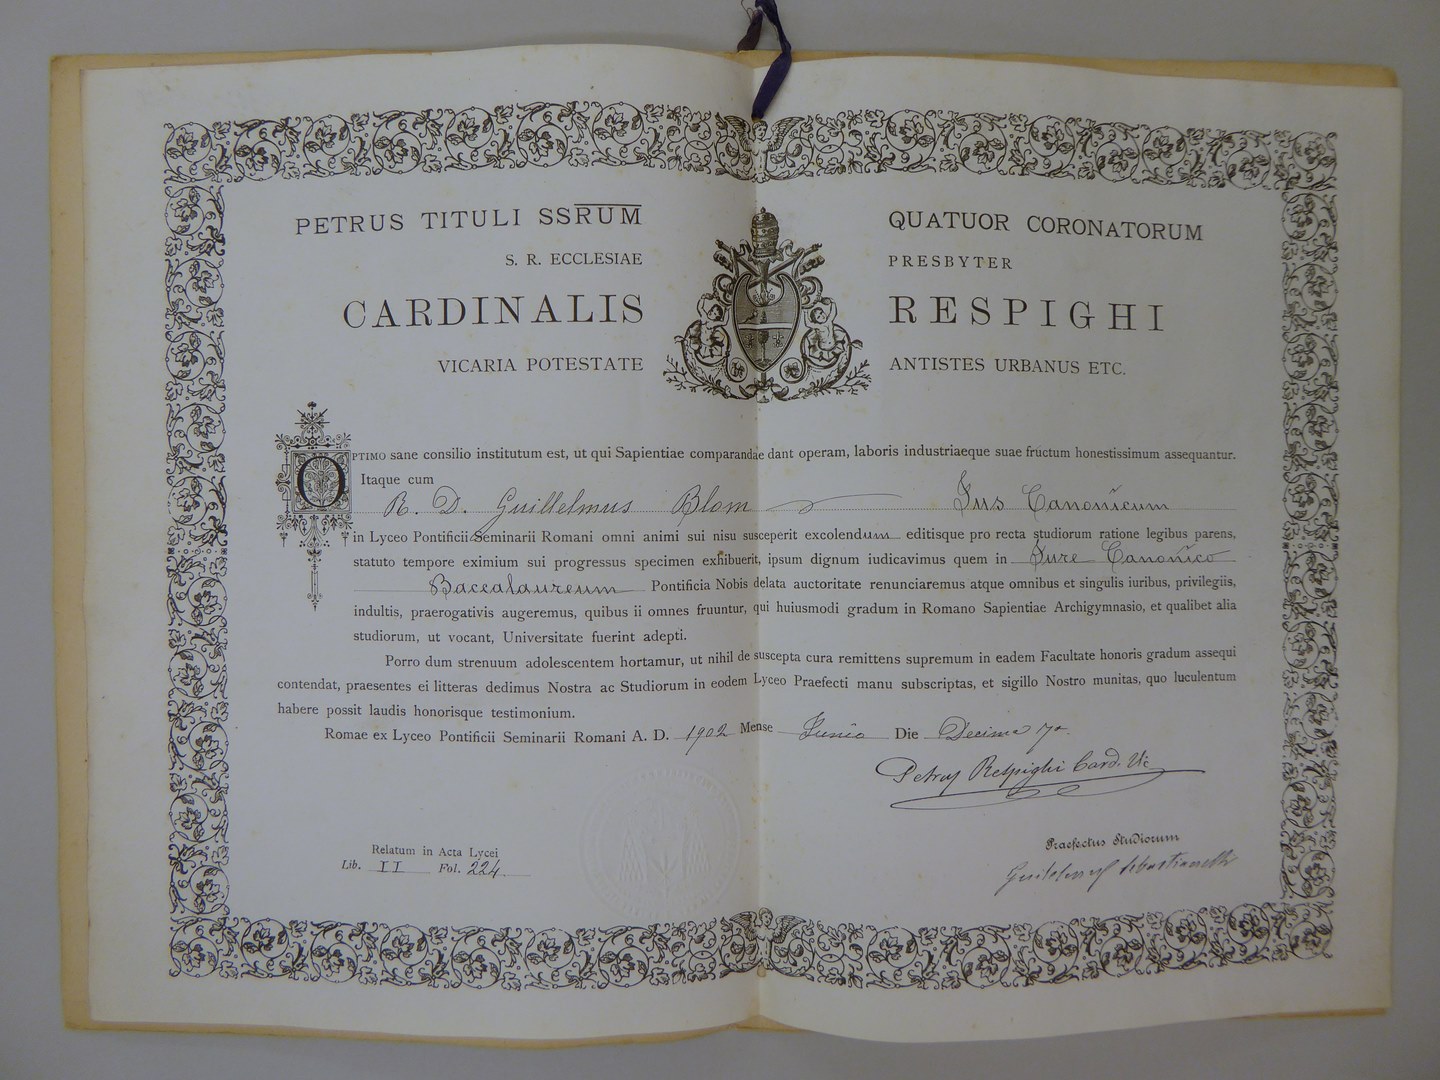 PETRUS TITULI SSRUM QUATUOR CORONATORUM
S. R. ECCLESIAE PRESBYTER
CARDINALIS RESPIGHI
VICARIA POTESTATE ANTISTES URBANUS ETC.
OPTIMO sane consilio institutum est, ut qui Sapientiae comparandae dant operam, laboris industriaeque suae fructum honestissimum assequantur.
Itaque cum
R. D. Guillelmus Blom Jus Canonicum
in Lyceo Pontificii Seminarii Romani omni animi sui nisu susceperit excolendum editisque pro recta studiorum ratione legibus parens,
statuto tempore eximium sui progressus specimen exhibuerit, ipsum dignum iudicavimus quem in Jure Canonico
Baccalaureum Pontificia Nobis delata auctoritate renunciaremus atque omnibus et singulis iuribus, privilegiis,
indultis, praerogativis augeremus, quibus ii omnes fruuntur, qui huiusmodi gradum in Romano Sapientiae Archigymnasio, et qualibet alia
studiorum, ut vocant, Universitate fuerint adepti.
Porro dum strenuum adolescentem hortamur, ut nihil de suscepta cura remittens supremum in eadem Facultate honoris gradum assequi
contendat, praesentes ei litteras dedimus Nostra ac Studiorum in eodem Lyceo Praefecti manu subscriptas, et sigillo Nostro munitas, quo luculentum
habere possit laudis honorisque testimonium.
Romae ex Lyceo Pontificii Seminarii Romani A. D. 1902 Mense Junio Die Decima 7a
Petrus Respighi Card. Vic.
Praefectus Studiorum
Guilelmus Sebastianelli
Relatum in Acta Lycei
Lib. II Fol. 224